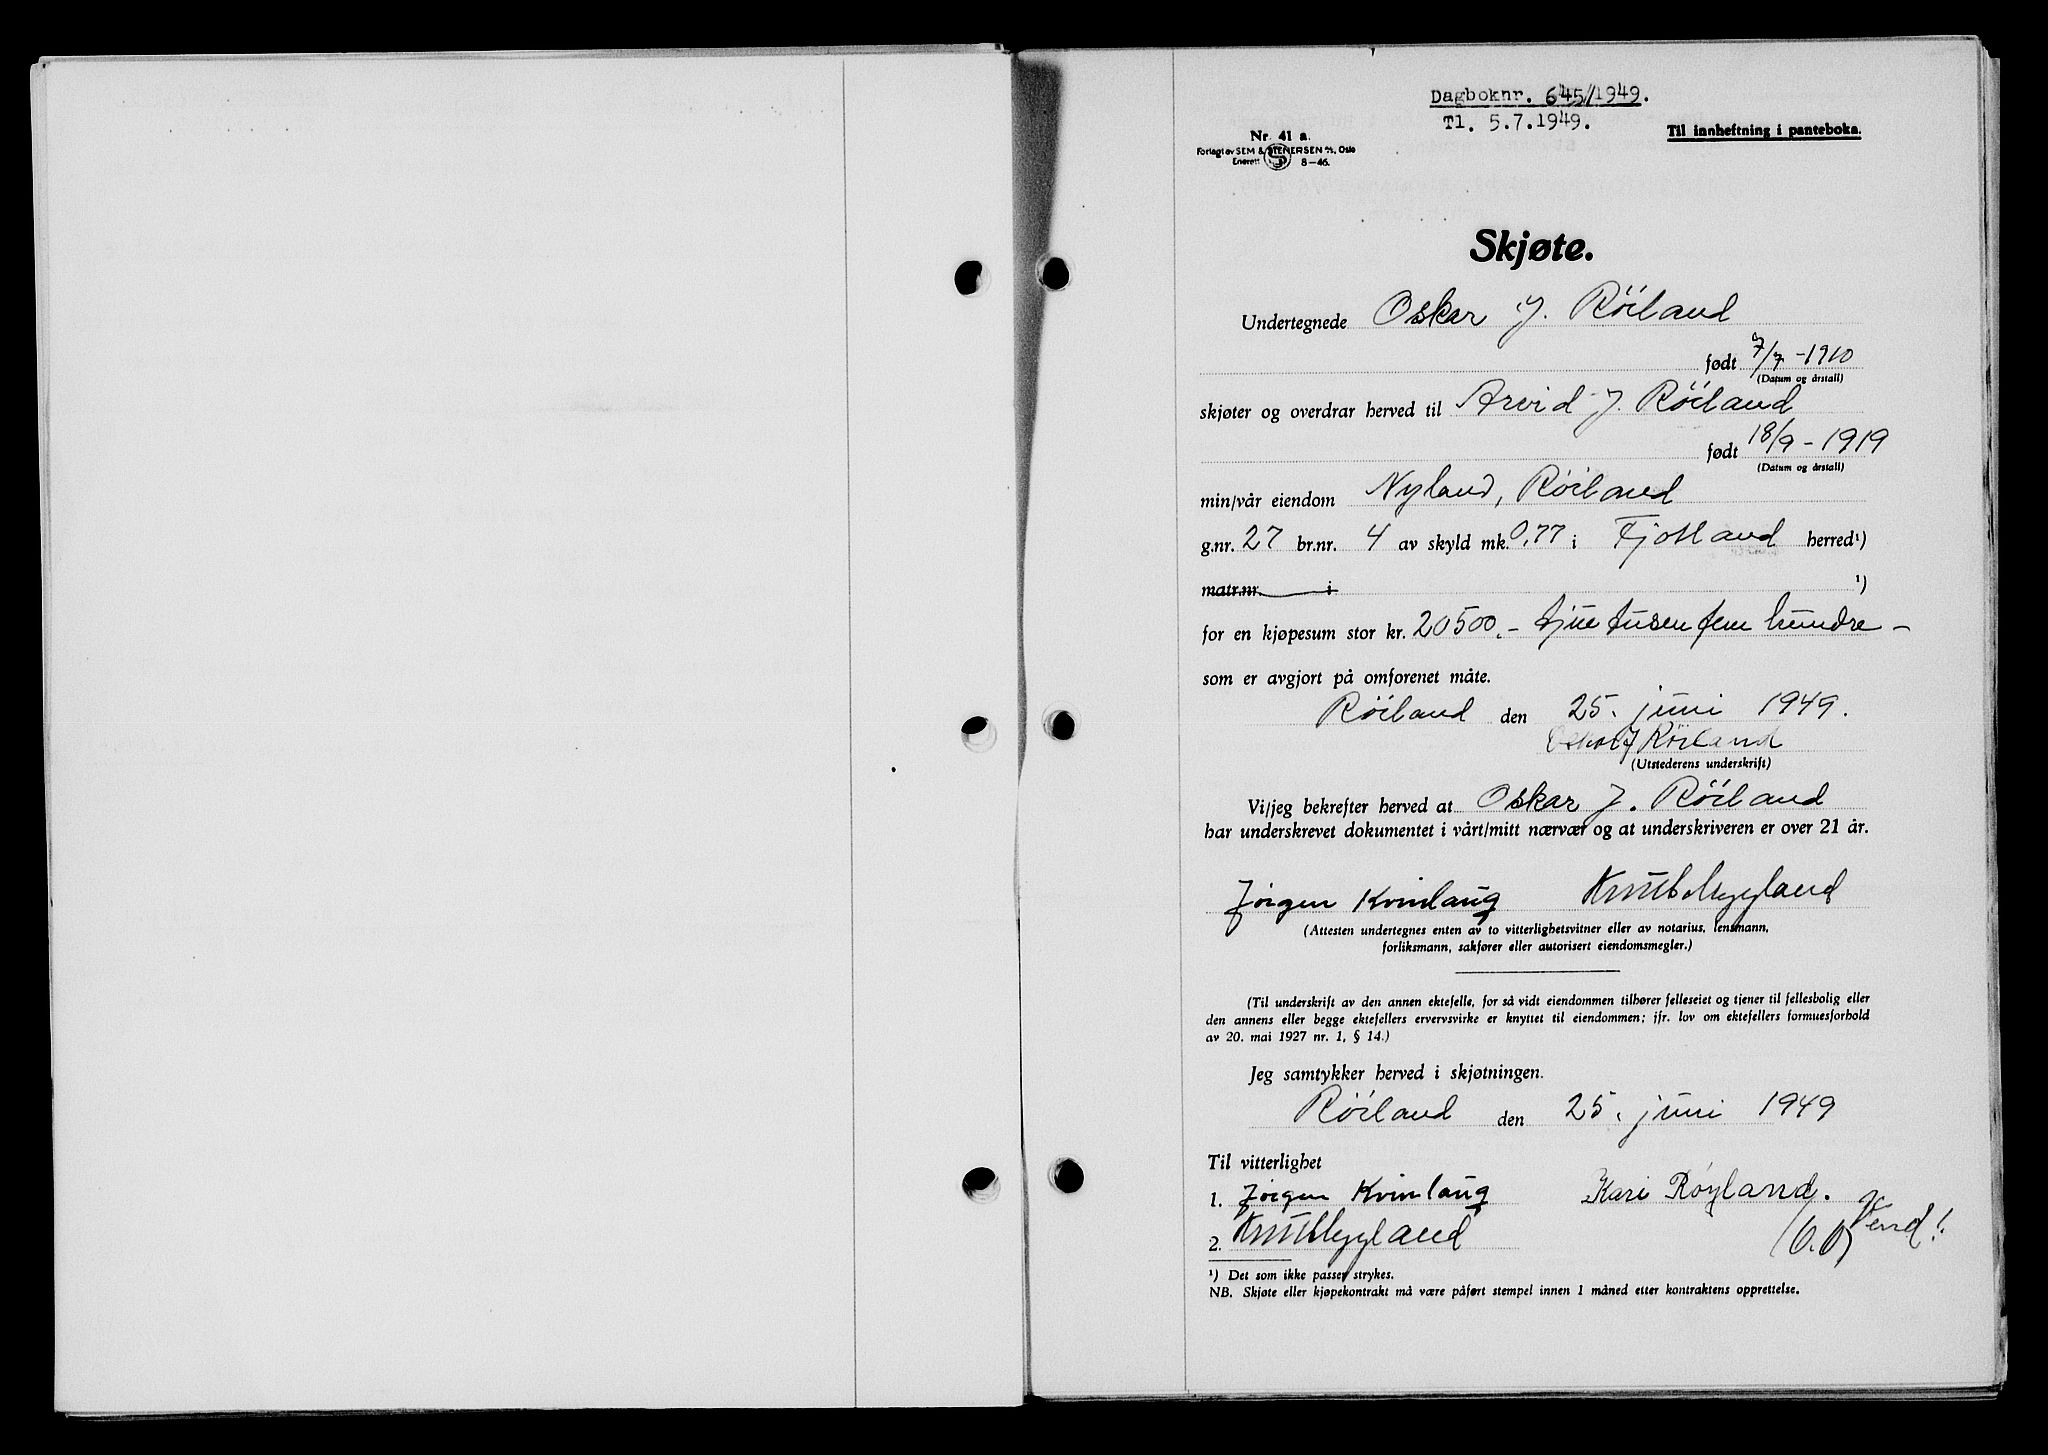 Dagboknr. 645/1949.
Tl. 5.7.1949.
Til innheftning i panteboka.
Nr. 41 a.
Forlagt av SEM & STENERSEN A/S, Oslo
Enerett S 8-46.
Skjøte.
Undertegnede Oskar J. Röiland
født 7/7-1910
(Datum og årstall)
skjøter og overdrar herved til Arvid J. Röiland
født 18/9-1919
(Datum og årstall)
min/vår eiendom Nyland, Röiland
g.nr. 27 br.nr. 4 av skyld mk. 0,77 i Fjotland herred¹)
matr.nr. i ¹)
for en kjøpesum stor kr. 20500.- tjue tusen fem hundre -
som er avgjort på omforenet måte.
Röiland den 25. juni 1949.
Oskar J Röiland
(Utstederens underskrift)
Vi/jeg bekrefter herved at Oskar J. Röiland
har underskrevet dokumentet i vårt/mitt nærvær og at underskriveren er over 21 år.
Jörgen Kvinlaug Knut Myyland
(Attesten undertegnes enten av to vitterlighetsvitner eller av notarius, lensmann,
forliksmann, sakfører eller autorisert eiendomsmegler.)
(Til underskrift av den annen ektefelle, for så vidt eiendommen tilhører felleseiet og tjener til fellesbolig eller
den annens eller begge ektefellers ervervsvirke er knyttet til eiendommen; jfr. lov om ektefellers formuesforhold
av 20. mai 1927 nr. 1, § 14.)
Jeg samtykker herved i skjøtningen.
Röiland den 25. juni 1949
Til vitterlighet
1. Jörgen Kvinlaug Kari Röyland.
2. Knut Myyland Vend!
¹) Det som ikke passer strykes.
NB. Skjøte eller kjøpekontrakt må være påført stempel innen 1 måned etter kontraktens opprettelse.